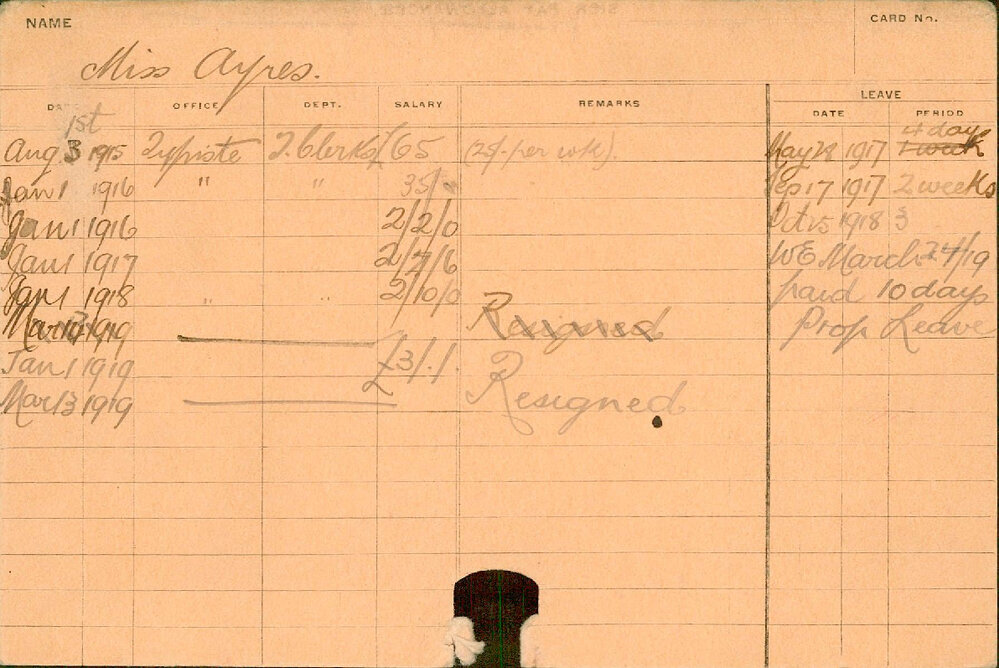 NAME
CARD No.
Miss Ayres.
LEAVE
DATE OFFICE DEPT. SALARY REMARKS DATE PERIOD
1st
4 days
Aug 3 1915 Typiste T. Clerks £65 (25/- per wk). May 28 1917 1 week
Jan 1 1916 " " 35/- Sep 17 1917 2 weeks
Jan 1 1916 2/2/0 Oct 15 1918 3
Jan 1 1917 2/7/6 WE March 24/19
Jan 1 1918 " " 2/10/0 paid 10 days
Mar 13 1919 Resigned Prop Leave
Jan 1 1919 £3/./.
Mar 13 1919 Resigned